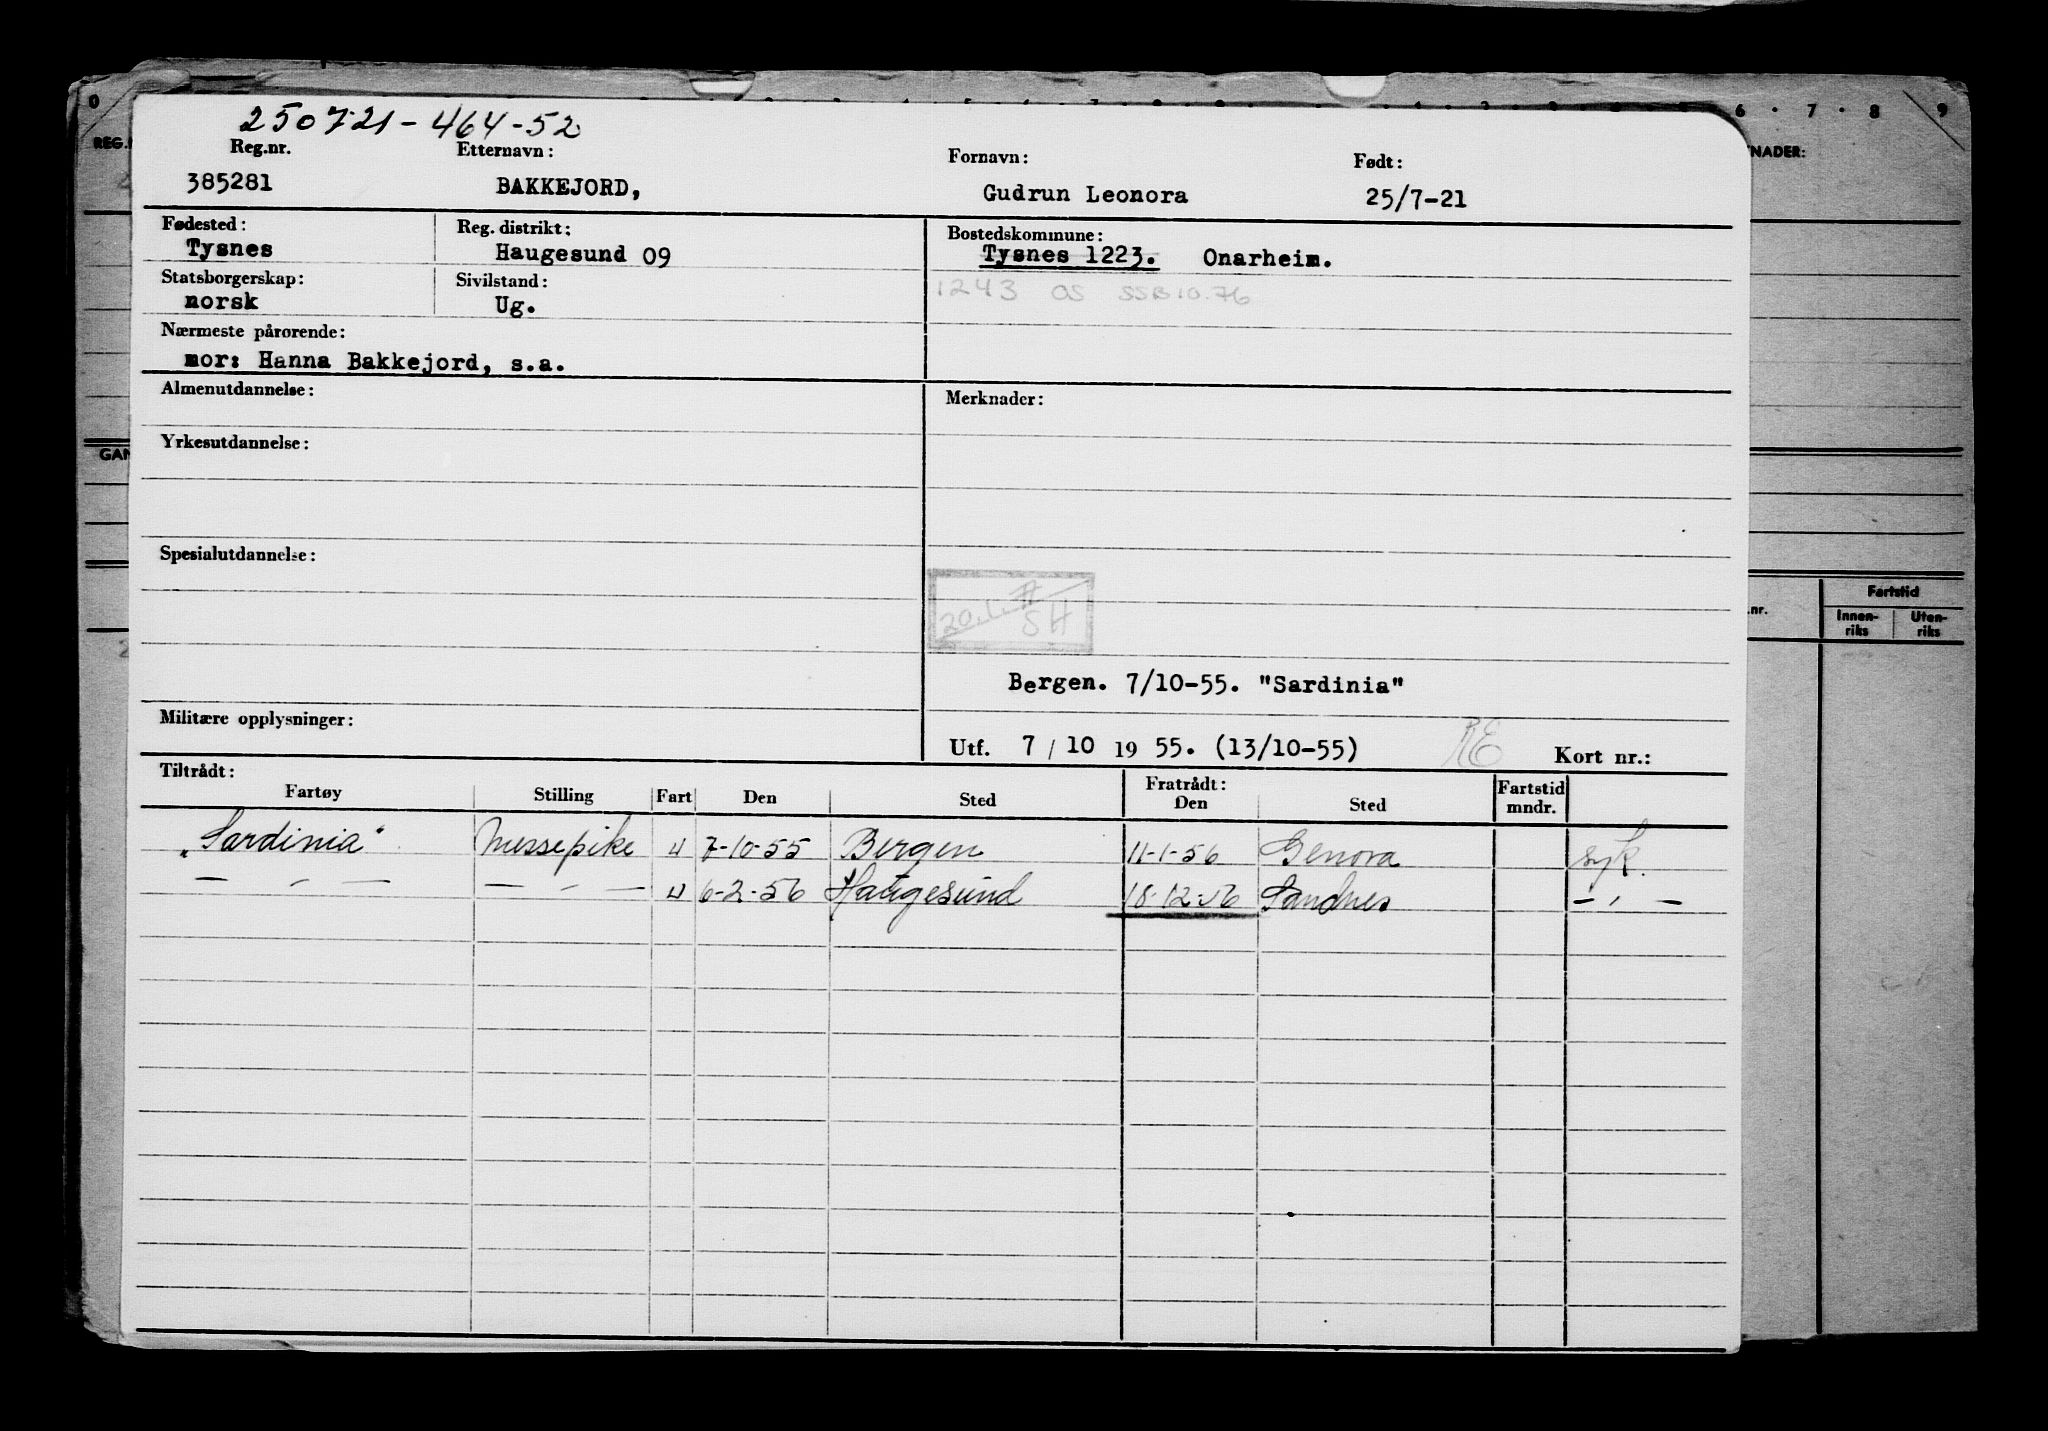 0 6 · 7 · 8 9
250721-464-52
Reg.nr. Etternavn: Fornavn: Født:
385281 BAKKEJORD, Gudrun Leonora 25/7-21
Fødested: Reg. distrikt: Bostedskommune:
Tysnes Haugesund 09 Tysnes 1223. Onarheim.
Statsborgerskap: Sivilstand: 1243 OS SSB 10.76
norsk Ug.
Nærmeste pårørende:
mor: Hanna Bakkejord, s.a.
Almenutdannelse: Merknader:
Yrkesutdannelse:
Spesialutdannelse:
SH
Bergen. 7/10-55. "Sardinia"
Militære opplysninger:
Utf. 7 / 10 19 55. (13/10-55) RE Kort nr.:
Tiltrådt: Fratrådt: Fartstid mndr.
Fartøy Stilling Fart Den Sted Den Sted
„Sardinia" Messepike U 7-10-55 Bergen 11-1-56 Genova syk.
— - — — - — U 6-2-56 Haugesund 18-12-56 Sandnes — ' —
NADER:
GAN
.nr. Fartstid
Innen-riks Uten-riks